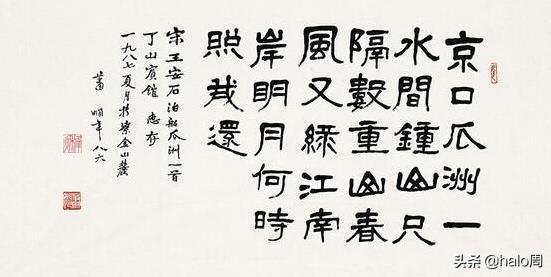 京口瓜洲一
水間鍾山只
隔數重山春
風又綠江南
岸明月何時
照我還
宋王安石泊船瓜洲一首
丁山賓館 惠存
一九八七夏月於紫金山麓
蕭嫻年八六
头条 @halo周